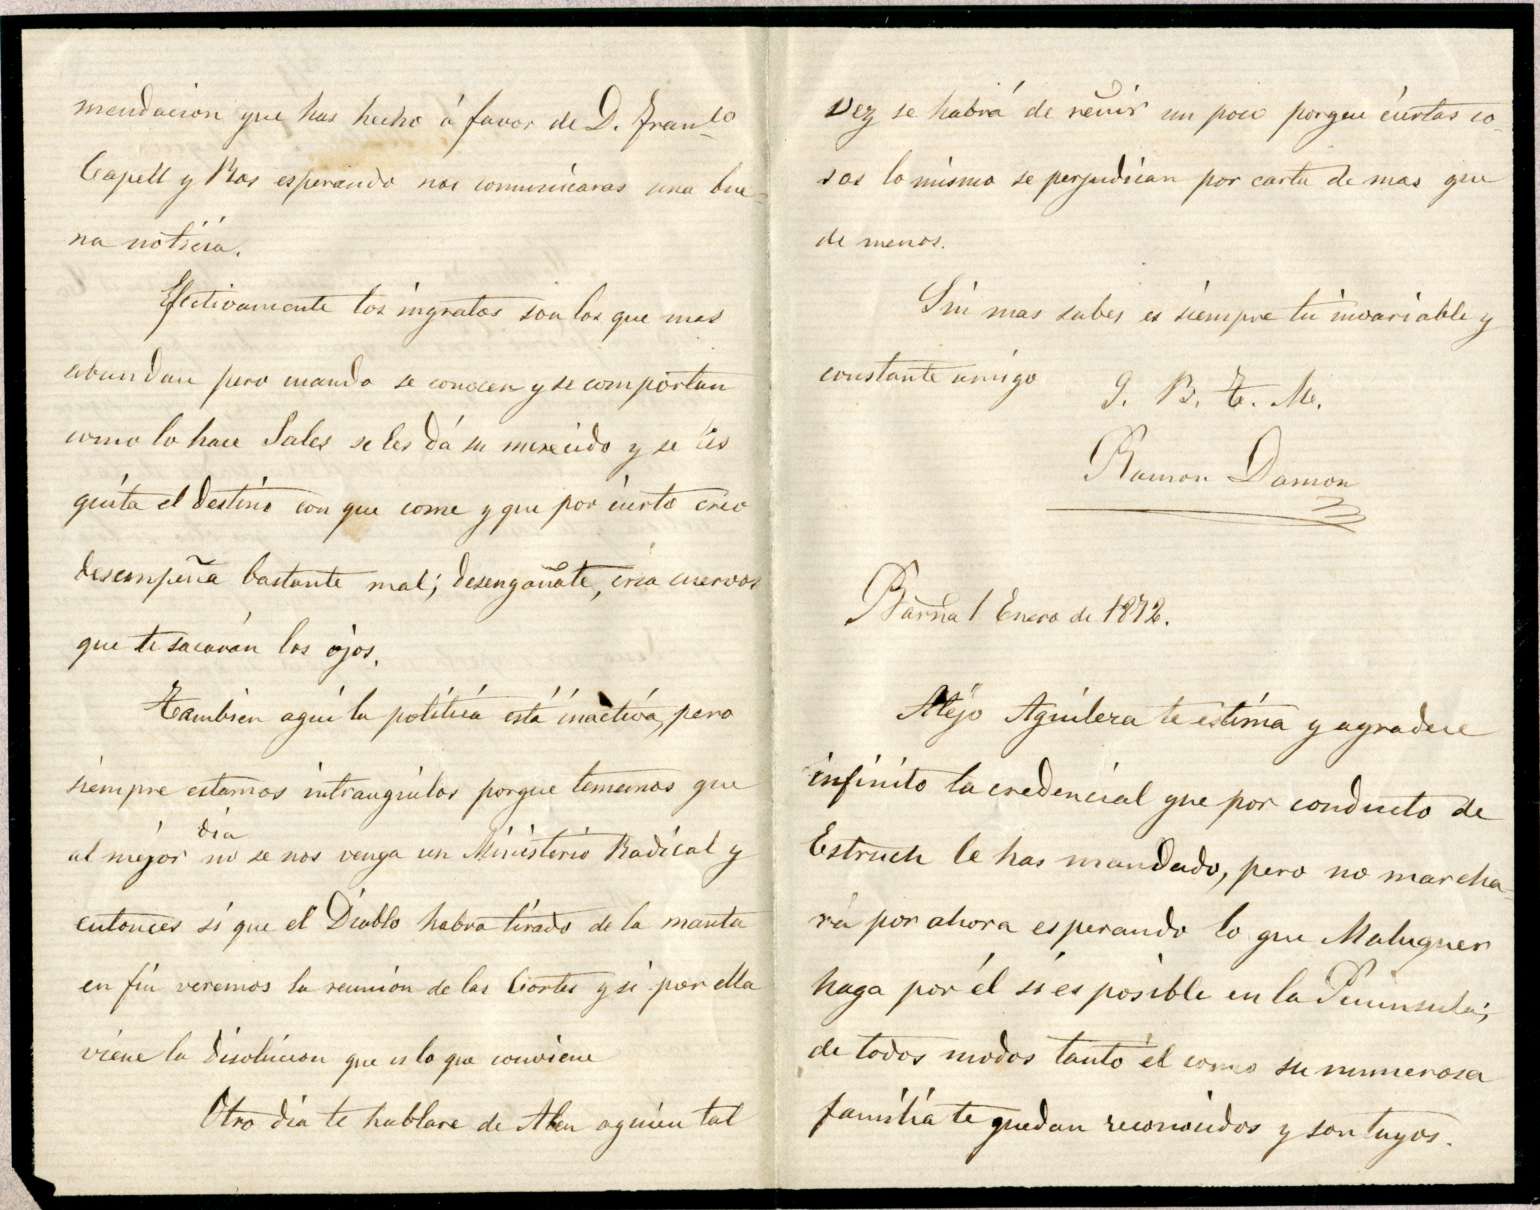 mendacion que has hecho á favor de D. Fran.co
Capell y Ros esperando nos comunicaras una bue-
na noticia.
Efectivamente los ingratos son los que mas
abundan pero cuando se conocen y se comportan
como lo hace Sales se les dá su merecido y se les
quita el destino con que come y que por cierto creo
desempeña bastante mal; desengañate, cria cuervos
que te sacarán los ojos.
Tambien aqui la politica está inactiva, pero
siempre estamos intranquilos porque tememos que
al mejor dia no se nos venga un Ministerio Radical y
entonces si que el Diablo habra tirado de la manta
en fin veremos la reunión de las Cortes y si por ella
viene la disolucion que es lo que conviene
Otro dia te hablare de  á quien tal
vez se habrá de reñir un poco porque ciertas co-
sas lo mismo se perjudican por carta de mas que
de menos.
Sin mas sabes es siempre tu invariable y
constante amigo
Q. B. T. M.
Ramon Damon
Barña 1 Enero de 1872.
Alejo Aguilera te estima y agradece
infinito la credencial que por conducto de
Estruch le has mandado, pero no marcha-
rá por ahora esperando lo que Maluquer
haga por él si es posible en la Peninsula;
de todos modos tanto él como su numerosa
familia te quedan reconocidos y son tuyos.